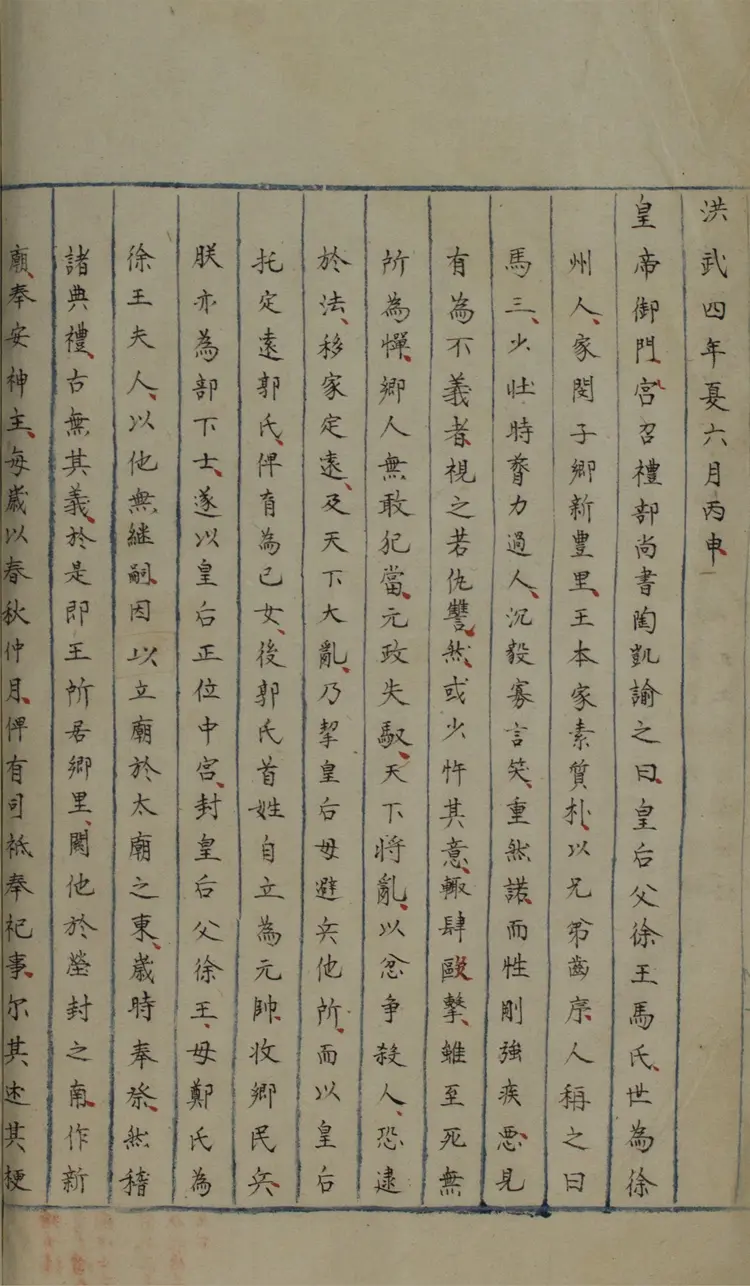 洪武四年夏六月丙申
皇帝御門宮召禮部尚書陶凱諭之曰皇后父徐王馬氏世為徐
州人家閔子鄉新豊里王本家素質朴以兄弟齒序人稱之曰
馬三少壯時膂力過人沉毅寡言笑重然諾而性剛強疾惡見
有為不義者視之若仇讐然或少忤其意輙肆毆擊雖至死無
所為憚鄉人無敢犯當元政失馭天下将亂以忿争殺人恐逮
於法移家定遠及天下大亂乃挈皇后母避兵他所而以皇后
托定遠郭氏俾育為己女後郭氏首姓自立為元帥收鄉民兵
朕亦為部下士遂以皇后正位中宮封皇后父徐王母鄭氏為
徐王夫人以他無継嗣因以立廟於太廟之東歲時奉祭然稽
諸典禮古無其義於是即王所居鄉里闕他於塋封之南作新
廟奉安神主每歲以春秋仲月俾有司祗奉祀事尔其述其梗